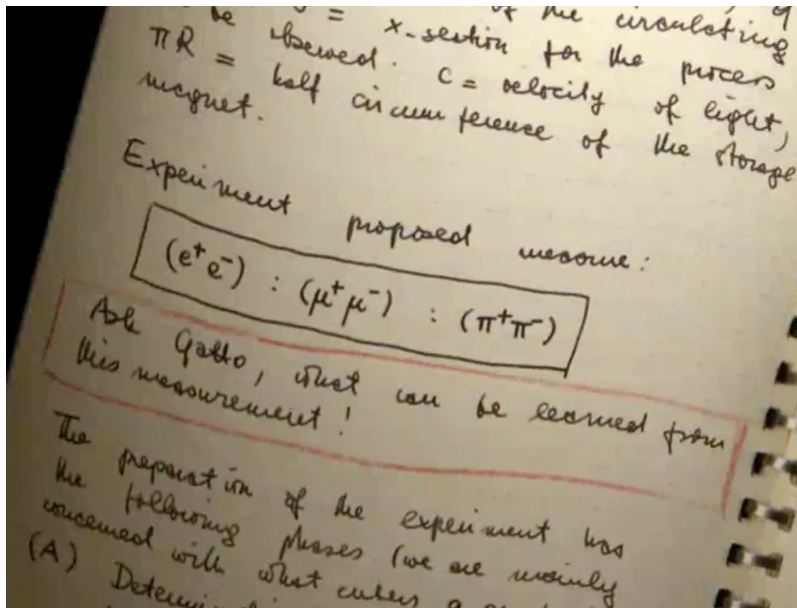 of the circulating
be = x-section for the process
observed. c = velocity of light,
πR = half circumference of the storage
magnet.
Experiment proposed measure:
(e⁺e⁻) : (μ⁺μ⁻) : (π⁺π⁻)
Ask Gatto, what can be learned from
this measurement!
The preparation of the experiment has
the following phases (we are mainly
concerned with what enters
(A)